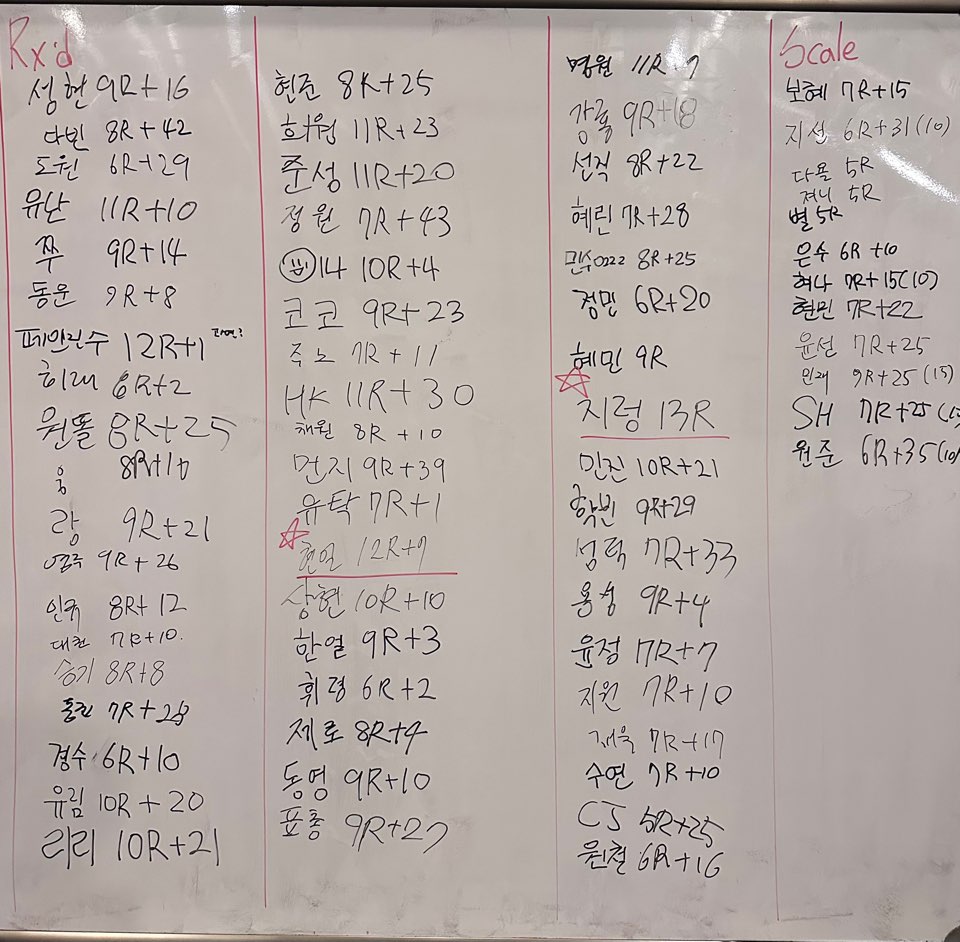 Rx'd
성현 9R+16
다빈 8R+42
도원 6R+29
유난 11R+10
쭈 9R+14
동운 9R+8
페인킬수 12R+1
희래 6R+2
원똘 8R+25
움 8R+10
랑 9R+21
영주 9R+26
인규 8R+12
대현 7R+10.
승기 8R+8
홍린 7R+28
경수 6R+10
유림 10R+20
리리 10R+21
현준 8R+25
희원 11R+23
준성 11R+20
정원 7R+43
14 10R+4
코코 9R+23
주노 7R+11
HK 11R+30
채원 8R+10
먼지 9R+39
유탁 7R+1
현열 12R+7
상현 10R+10
한열 9R+3
휘령 6R+2
제로 8R+4
동영 9R+10
표총 9R+27
명원 11R+7
강혁 9R+18
선직 8R+22
혜린 7R+28
민수0222 8R+25
정민 6R+20
혜민 9R
지렁 13R
민진 10R+21
학빈 9R+29
성탁 7R+33
용성 9R+4
윤정 7R+7
지원 7R+10
재욱 7R+17
수연 7R+10
CJ 5R+25
원철 6R+16
Scale
보혜 7R+15
지선 6R+31(10)
다올 5R
져니 5R
별 5R
은수 6R+10
혀나 7R+15(10)
현민 7R+22
윤선 7R+25
인재 9R+25(15)
SH 7R+25(15
원준 6R+35(10)